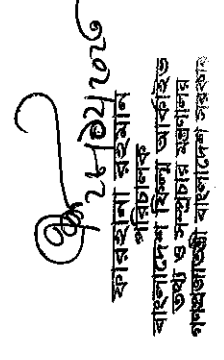 ২৮/০২/২০২৩
ফারহানা রহমান
পরিচালক
বাংলাদেশ ফিল্ম আর্কাইভ
তথ্য ও সম্প্রচার মন্ত্রণালয়
গণপ্রজাতন্ত্রী বাংলাদেশ সরকার